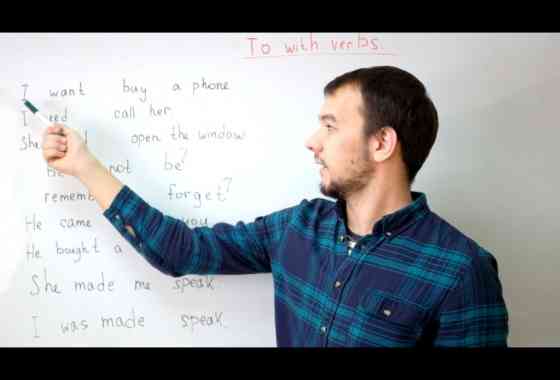 To with verbs.
I want buy a phone
I call her
She open the window
not be?
forget?
He came you
He bought a
She made me speak.
I was made speak.